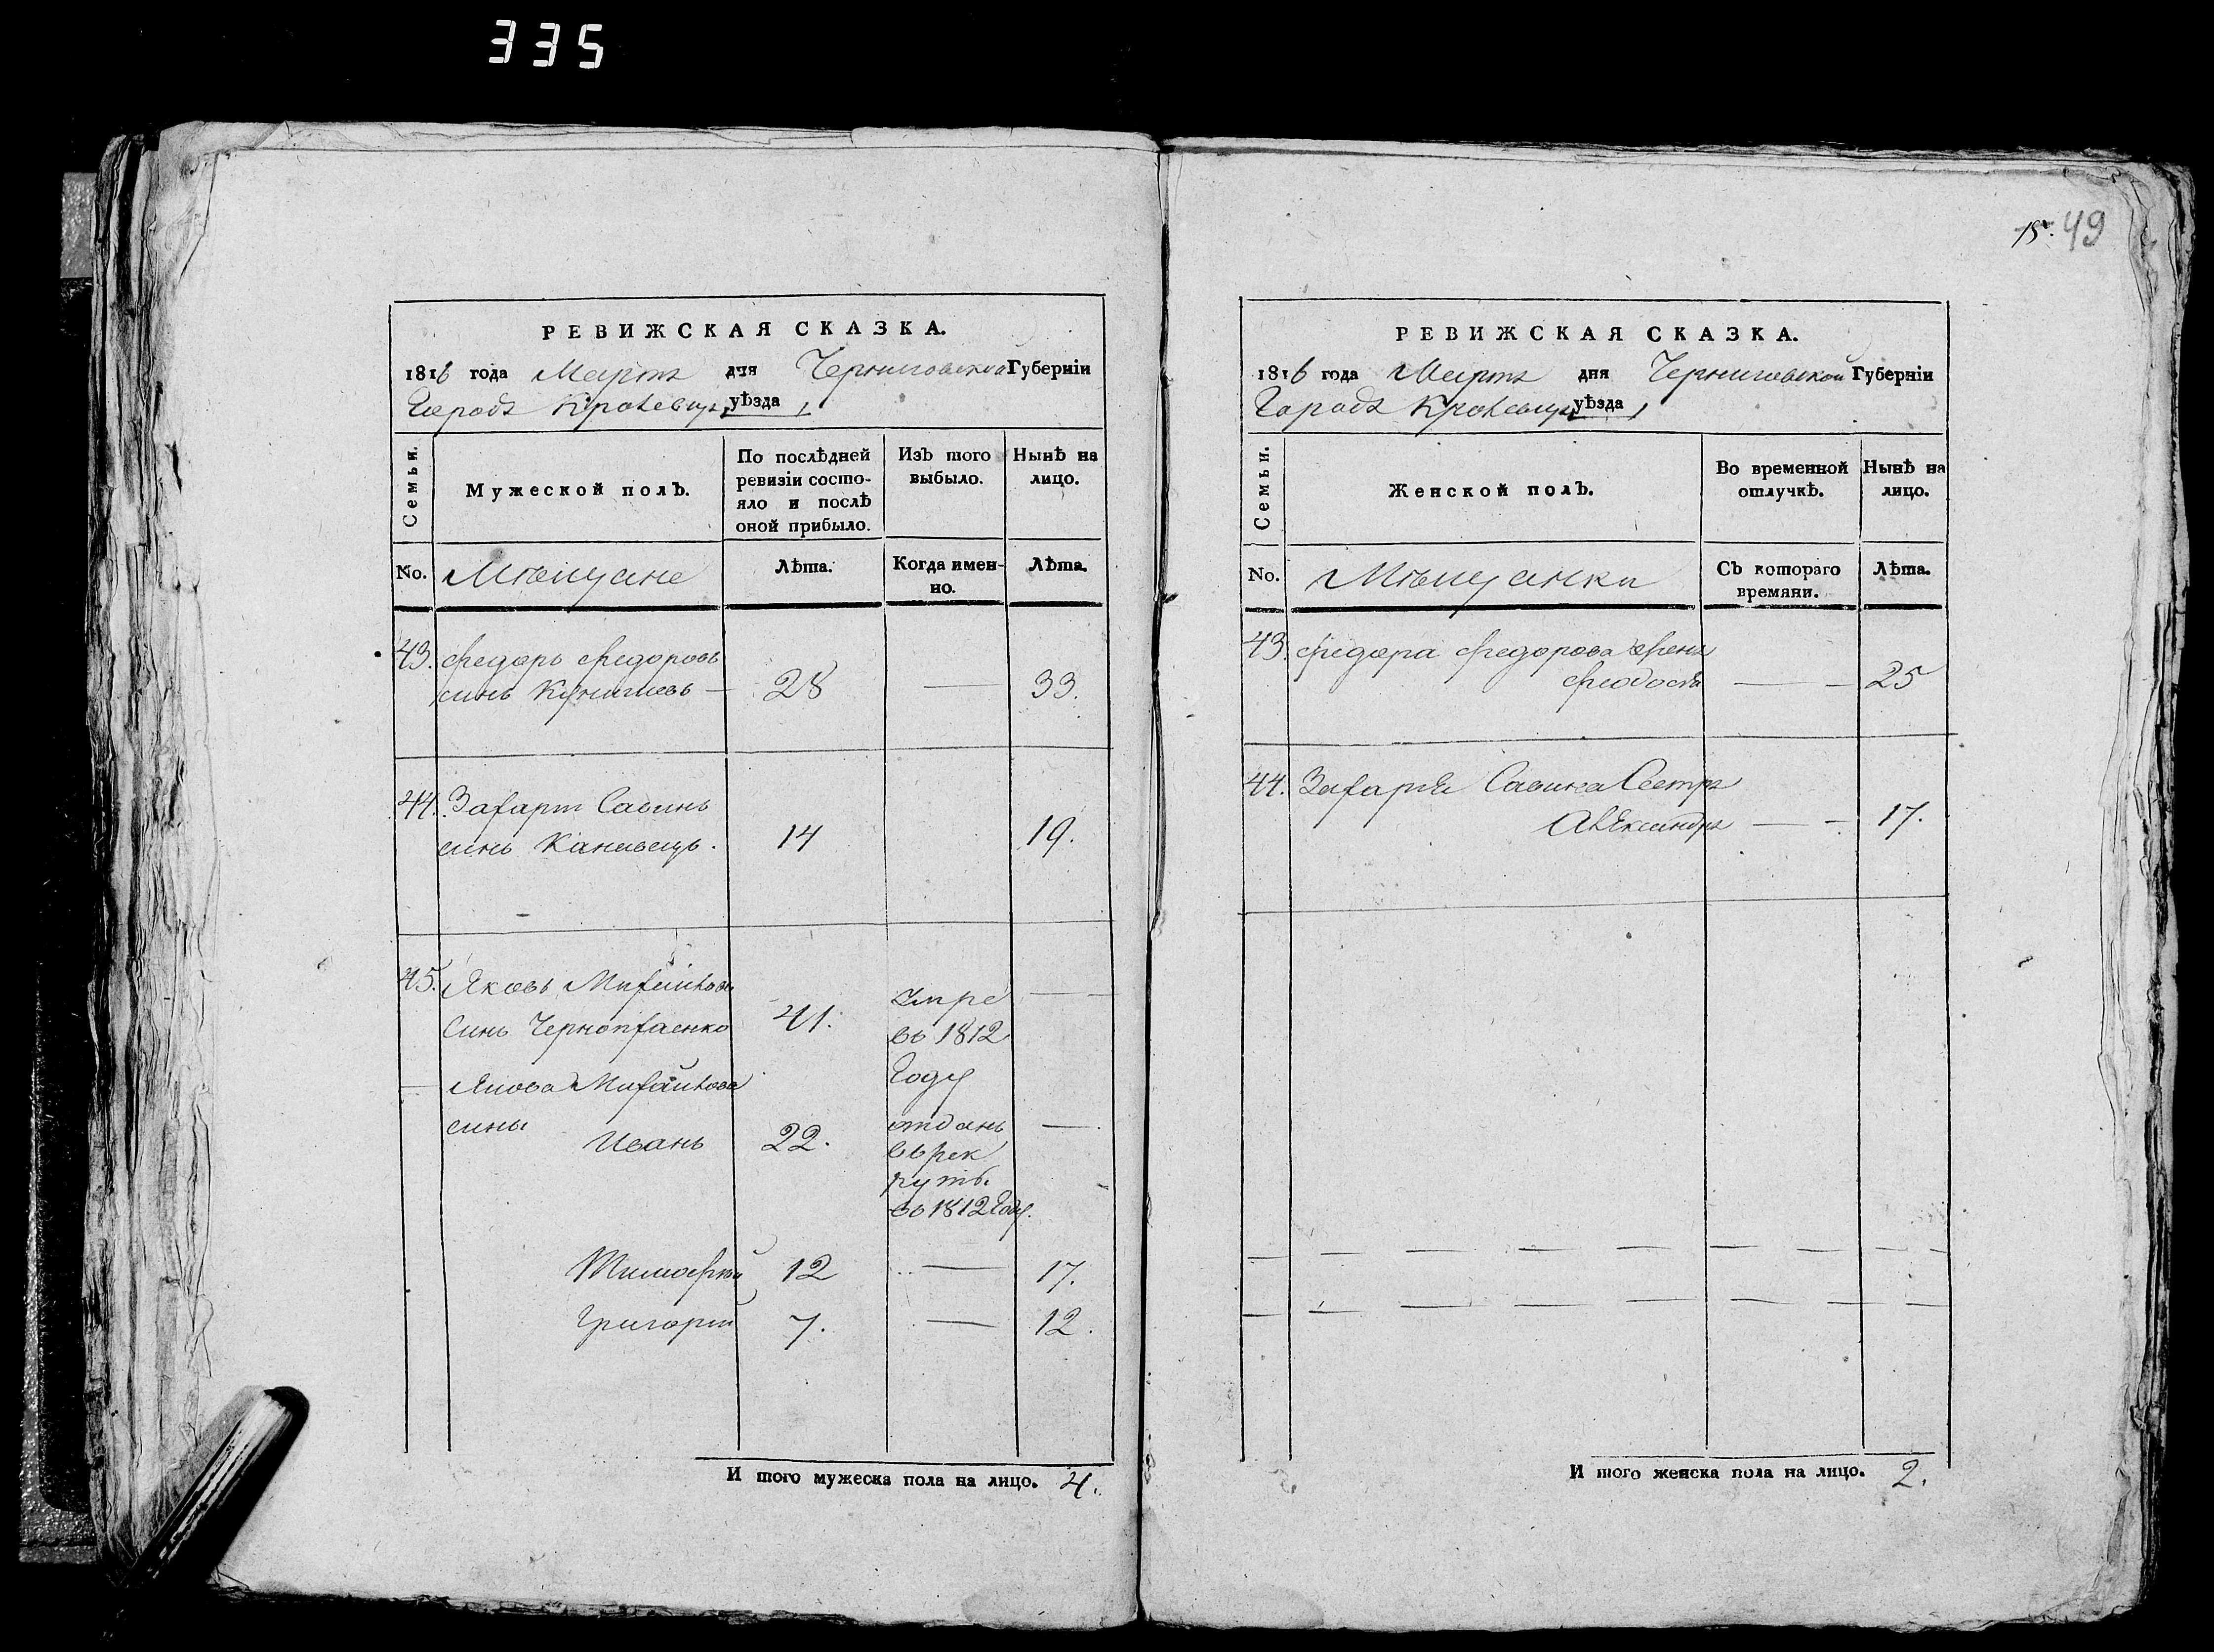 335
15. 49
РЕВИЖСКАЯ СКАЗКА.
1816 года Марта дня Черниговской Губерніи
Города Кролевца уѣзда
Семьи.
Мужеской полъ.
По послѣдней ревизіи состояло и послѣ оной прибыло.
Изъ того выбыло.
Нынѣ на лицо.
No.
Мѣщане
Лѣта.
Когда именно.
Лѣта.
43. Федоръ Федоровъ
синъ — 28 — 33.
44. Захарій Савинъ
синъ Каневецъ. 14 19.
45. Яковъ Михайловъ
синъ 41. умре —
въ 1812
Году
Якова Михайлова
сины
Иванъ 22. отданъ —
въ рек
руты
въ 1812 Году.
Тимофей 12 — 17.
Григорій 7. — 12.
И того мужеска пола на лицо. 4.
РЕВИЖСКАЯ СКАЗКА.
1816 года Марта дня Черниговской Губерніи
Города Кролевца уѣзда
Семьи.
Женской полъ.
Во временной отлучкѣ.
Нынѣ на лицо.
No.
Мѣщанки
Съ котораго времяни.
Лѣта.
43. Федора Федорова жена
Феодосія — — 25
44. Захарія Савина Сестра
Александра — — 17.
И того женска пола на лицо. 2.